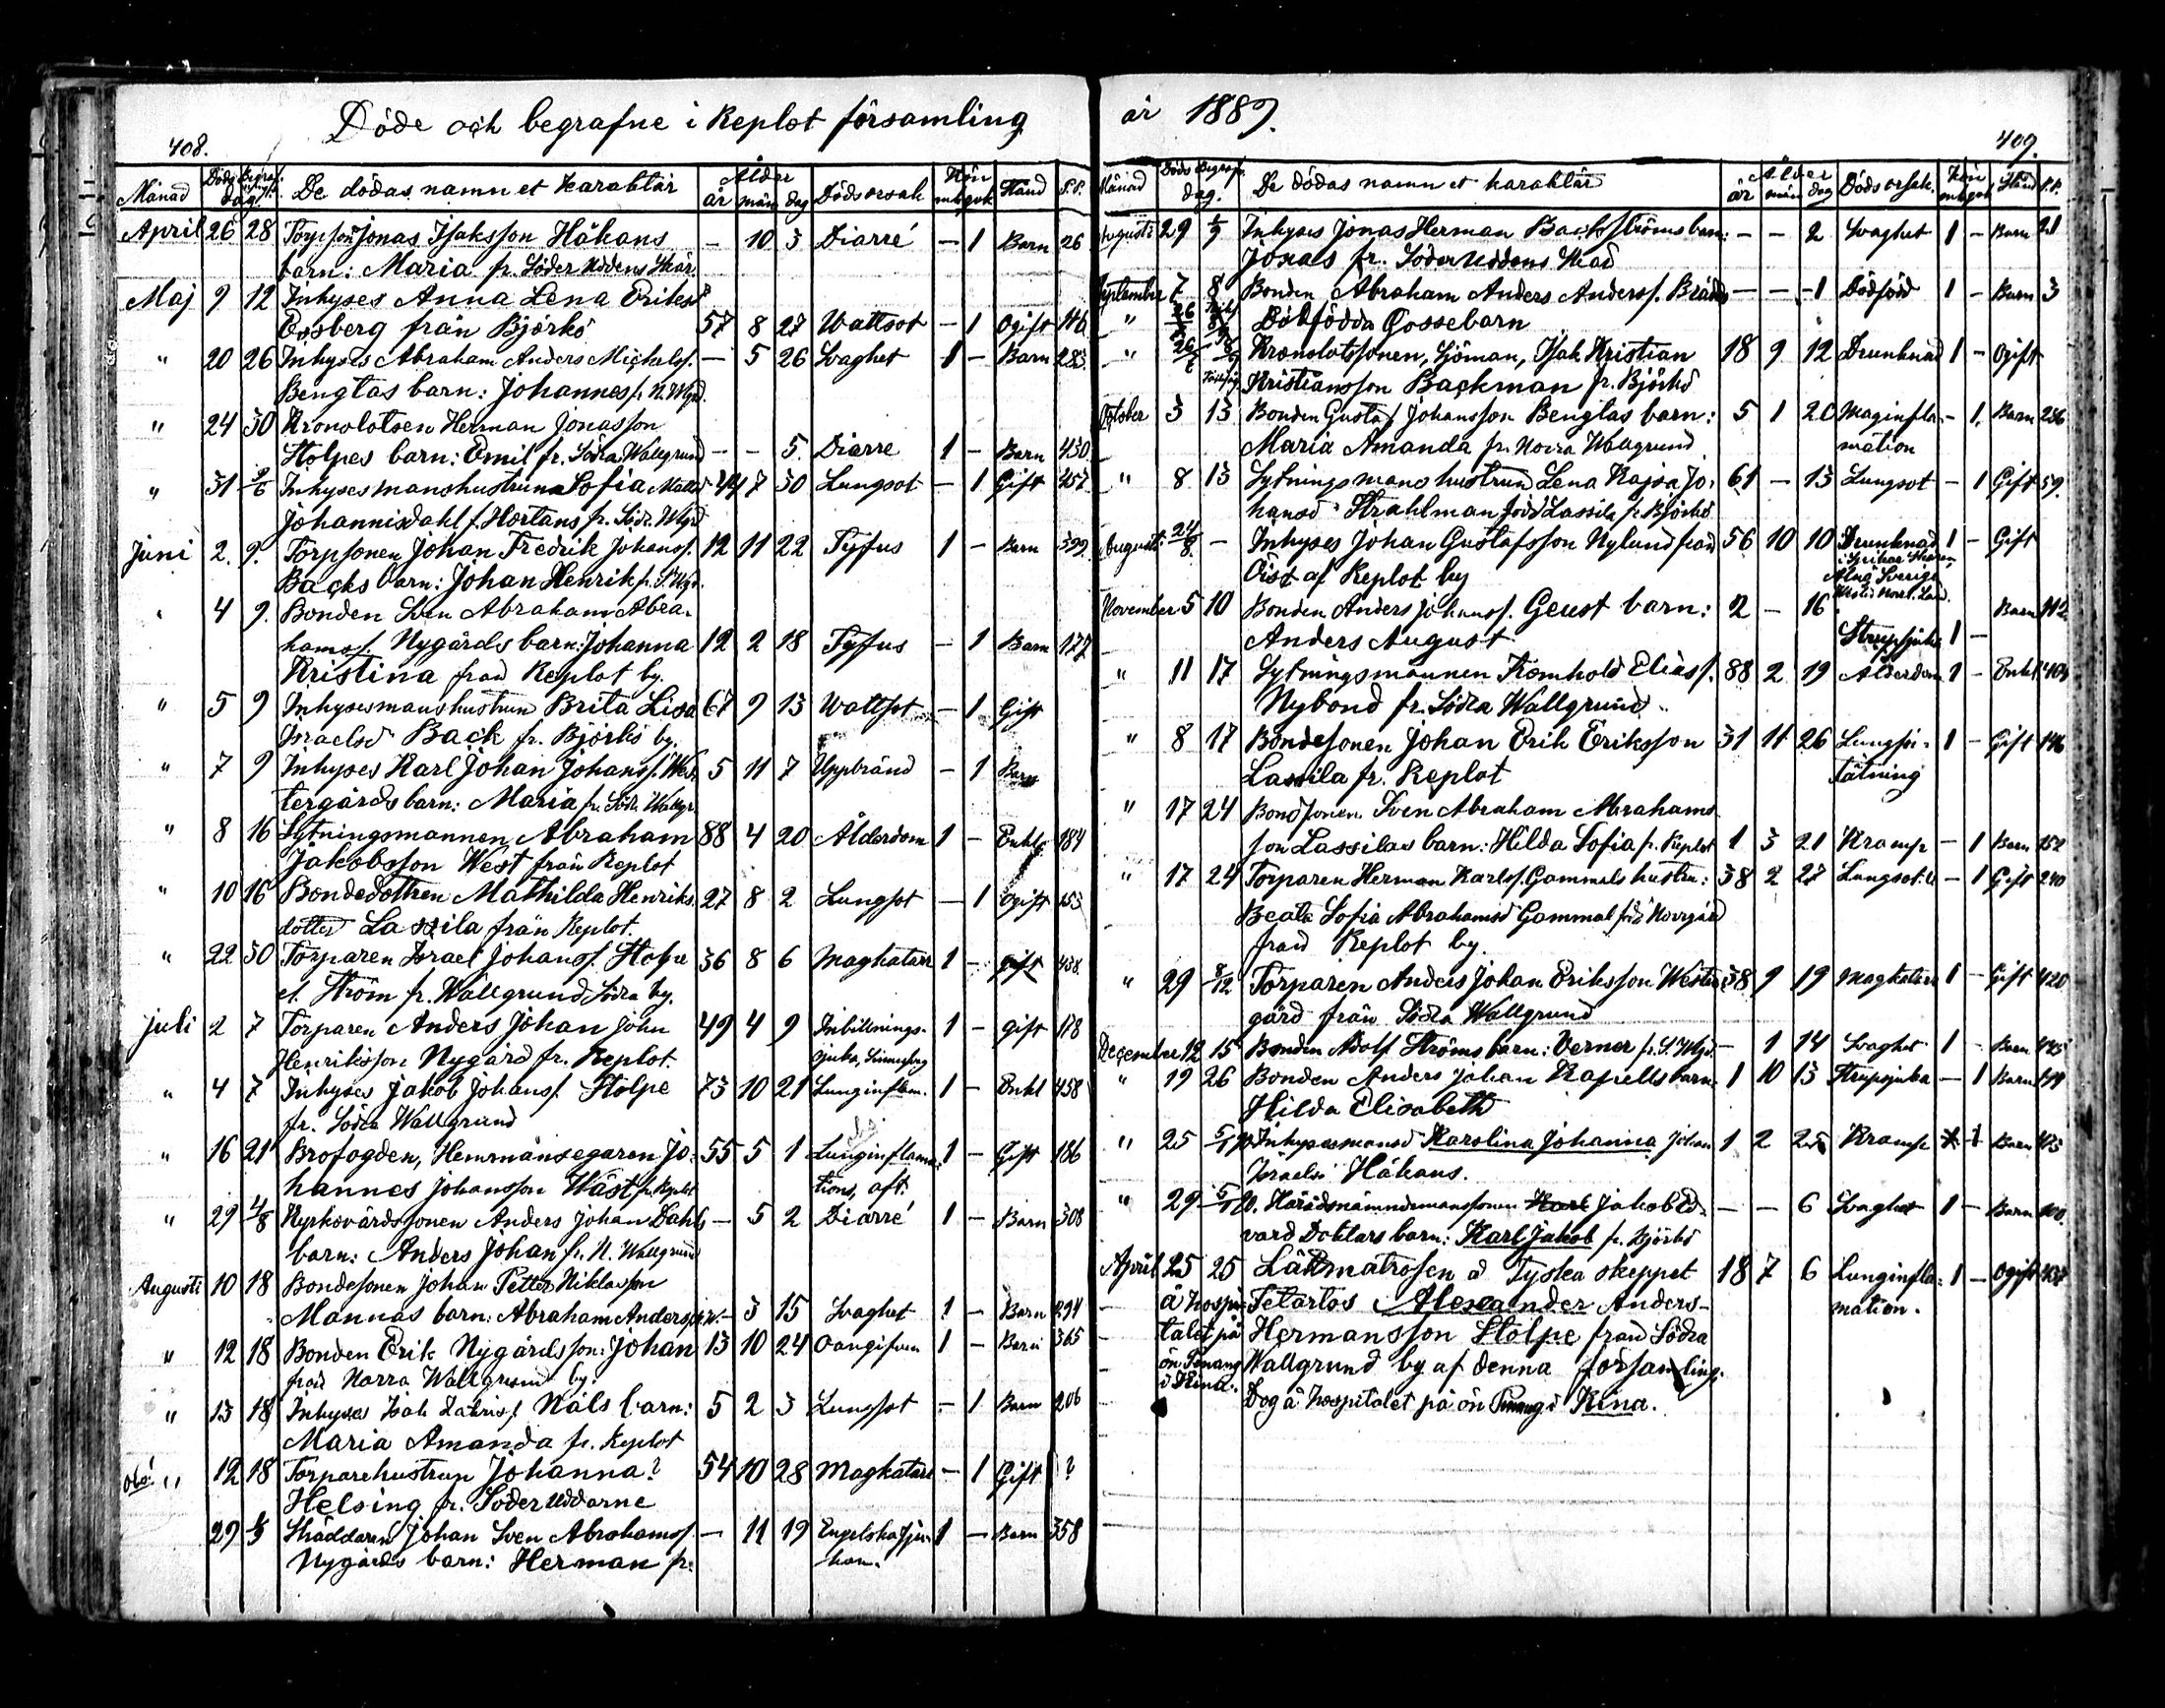 Döde och begrafne i Replot församling
408.
Månad Döds Begraf. dag De dödas namn et karaktär Ålder år mån dag Dödsorsak Kön mk qvk Stånd S.S.
April 26 28 Torpson Jonas Isaksson Håkans — 10 3 Diarré — 1 Barn 26
barn: Maria fr. Söder Uddens Skär.
Maj 9 12 Inhyses Anna Lena Eriksd
Essberg från Björkö 57 8 27 Wattsot — 1 Ogift
" 20 26 Inhyses Abraham Anders Michelss. — 5 26 Svaghet 1 — Barn 283
Benglas barn: Johannes fr. N. Wgrd.
" 24 30 Kronolotsen Herman Jonasson
Stolpes barn: Emil fr. Södra Wallgrund — — 5. Diarre 1 — Barn 430
" 31 2/6 Inhysesmanshustrun Sofia Mattsd 44 7 30 Lungsot — 1 Gift 457
Johannisdahl f. Hortans fr. Södr. Wgrd
Juni 2. 9. Torpsonen Johan Fredrik Johanss. 12 11 22 Tyfus 1 — Barn 399
Backs barn: Johan Henrik fr. S. Wgrd.
" 4 9. Bonden Sven Abraham Abra-
hamss. Nygårds barn: Johanna 12 2 18 Tyfus — 1 Barn 177
Kristina från Replot by.
" 5 9 Inhysesmanshustrun Brita Lisa 67 9 13 Wattsot — 1 Gift
Israelsd Back fr. Björkö by.
" 7 9 Inhyses Karl Johan Johanss. Wes- 5 11 7 Uppbränd — 1 Barn
tergårds barn: Maria fr. Södr. Wallgr.
" 8 16 Sytningsmannen Abraham 88 4 20 Ålderdom 1 — Enkl. 184
Jakobsson West från Replot
" 10 16 Bondedottren Mathilda Henriks- 27 8 2 Lungsot — 1 Ogift 153
dotter Lassila från Replot.
" 22 30 Torparen Israel Johanss. Stolpe 36 8 6 Magkatarr 1 — Gift 438
el. Ström fr. Wallgrund Södra by.
Juli 2 7 Torparen Anders Johan John 49 4 9 Inbillnings- 1 — Gift 178
Henriksson Nygård fr. Replot. sjuka, Sinnessvag
" 4 7 Inhyses Jakob Johanss. Stolpe 73 10 21 Lunginflam. 1 — Enkl 458
fr. Södra Wallgrund
" 16 21 Brofogden, Hemmansegaren Jo- 55 5 1 Lunginflama- 1 — Gift 186
hannes Johansson Wäst fr. Replot tions, aft.
" 29 4/8 Kyrkovärdssonen Anders Johan Dahls — 5 2 Diarré 1 — Barn 308
barn: Anders Johan fr. N. Wallgrund
Augusti 10 18 Bondesonen Johan Petter Niklasson
Mannas barn: Abraham Anders — 3 15 Svaghet 1 — Barn 294
" 12 18 Bonden Erik Nygårds son: Johan 13 10 24 Oangifven 1 — Barn 365
från Norra Wallgrund by.
" 13 18 Inhyses Isak Zakriss. Näls barn: 5 2 3 Lungsot — 1 Barn 206
Maria Amanda fr. Replot
obs! " 12 18 Torparehustrun Johanna? 54 10 28 Magkatarr — 1 Gift ?
Helsing fr. Söder Uddarne
29 Skräddaren Johan Sven Abrahamss. — 11 19 Engelska sju- 1 — Barn 358
Nygårds barn: Herman fr. kan.
år 1889.
409.
Månad Döds Begraf. dag. De dödas namn et karaktär Ålder år mån dag Dödsorsak. Kön mk qvk Stånd S.S.
Augusti 29 1/9 Inhyses Jonas Herman Backströms barn: — — 2 Svaghet 1 — Barn 21
Jonas fr. Söder Uddens Skär
September 7 8 Bonden Abraham Anders Anderss. — — -1 Dödfödd 1 — Barn 3
" Dödfödda Gossebarn
" Kronolotssonen, Sjöman, Isak Kristian 18 9 12 Drunknad 1 — Ogift
Kristiansson Backman fr. Björkö
October 3 13 Bonden Gustaf Johansson Benglas barn: 5 1 20 Maginfla- — 1. Barn 286
Maria Amanda fr. Norra Wallgrund mation
" 8 13 Sytningsmans hustrun Lena Kajsa Jo- 61 — 13 Lungsot — 1 Gift 59.
hansd Strahlman född Lassila fr. Björkö
Augusti 24/8. — Inhyses Johan Gustafsson Nylund från 56 10 10 Drunknad 1 — Gift
Öist af Replot by Alnö Sverige
November 5 10 Bonden Anders Johanss. Geust barn: 2 — 16 Barn 112
Anders August Strupsjuka 1 —
" 11 17 Sytningsmannen Tromhold Eliass. 88 2 19 Ålderdom 1 — Enkl 404
Nybond fr. Södra Wallgrund
" 8 17 Bondesonen Johan Erik Eriksson 31 11 26 Lungsi- 1 — Gift 146
Lassila fr. Replot tätning
" 17 24 Bondsonen Sven Abraham Abrahams
son Lassilas barn: Hilda Sofia fr. Replot 1 3 21 Kramp — 1 Barn 152
" 17 24 Torparen Herman Karlss. Gammals hustru: 38 2 27 Lungsot — 1 Gift 240
Beata Sofia Abrahamsd Gammal född Norrgård
från Replot by.
" 29 8/12 Torparen Anders Johan Eriksson Wester- 38 9 19 Magkatarr 1 — Gift 420
gård från Södra Wallgrund
December 12 15 Bonden Adolf Ströms barn: Verner fr. S. Wgd. — 1 14 Svaghet 1 — Barn 445
" 19 26 Bonden Anders Johan Kapells barn 1 10 13 Strupsjuka — 1 Barn
Hilda Elisabeth
" 25 5/1 90 Inhysesmansd Karolina Johanna Johan 1 2 25 Kramp 1 Barn
Israels: Håkans.
" 29 5/1 90. Häradsnämndemanssonen Karl Jakob Ed- — — 6 Svaghet 1 — Barn 100.
vard Doktars barn: Karl Jakob fr. Björkö
April 25 25 Lättmatrosen å Tyska skeppet 18 7 6 Lunginfla- 1 — Ogift 437
å hospi- Tetartos Alexander Anders- mation.
talet på Hermansson Stolpe från Södra
ön Penang Wallgrund by af denna församling.
i Kina. Dog å hospitalet på ön Penang i Kina.